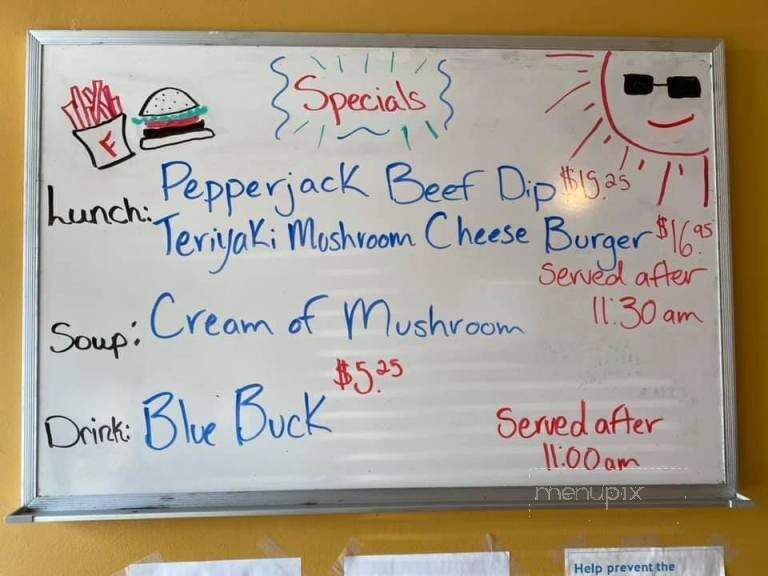 Specials
F
Lunch: Pepperjack Beef Dip $15.25
Teriyaki Mushroom Cheese Burger $16.95
Served after
11:30 am
Soup: Cream of Mushroom
$5.25
Drink: Blue Buck
Served after
11:00 am
menupix
Help prevent the